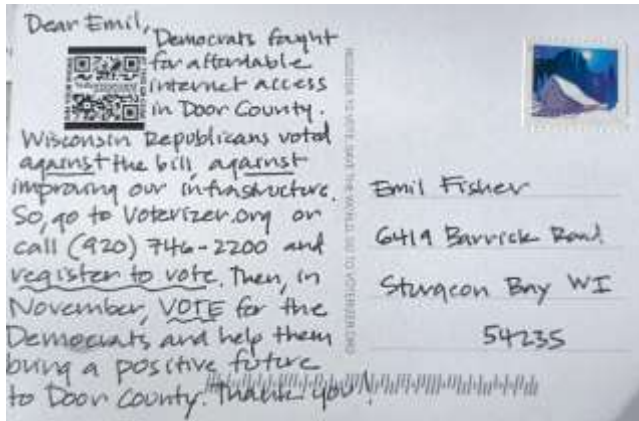 Dear Emil,
Democrats fought
for affordable
internet access
in Door County.
Wisconsin Republicans voted
against the bill, against
improving our infrastructure.
So, go to Voterizer.org or
call (920) 746-2200 and
register to vote. Then, in
November, VOTE for the
Democrats and help them
bring a positive future
to Door County. Thank you!
REGISTER TO VOTE. SAVE THE WORLD. GO TO VOTERIZER.ORG
Emil Fisher
6419 Barrick Road
Sturgeon Bay WI
54235